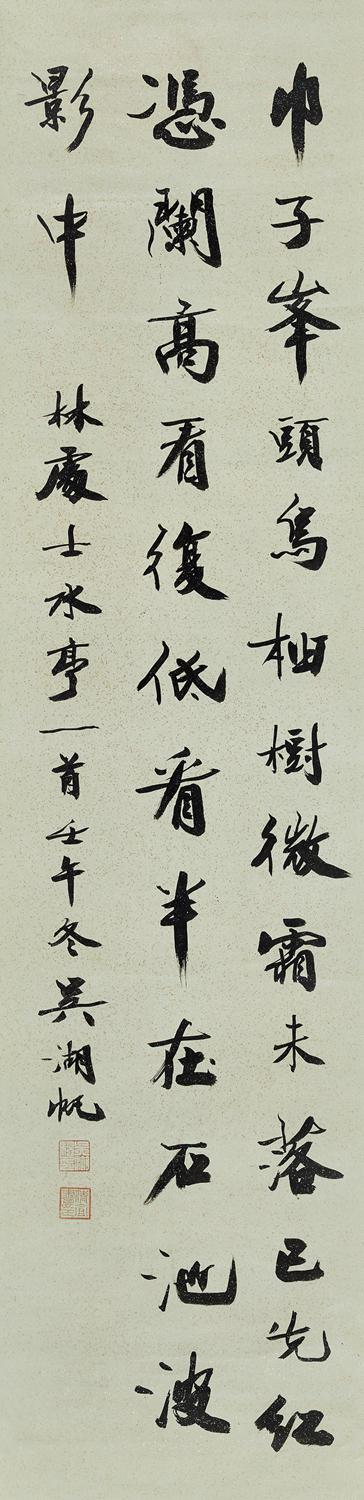 巾子峯頭烏桕樹微霜未落已先紅
憑闌高看復低看半在石池波
影中
林處士水亭一首壬午冬吳湖帆